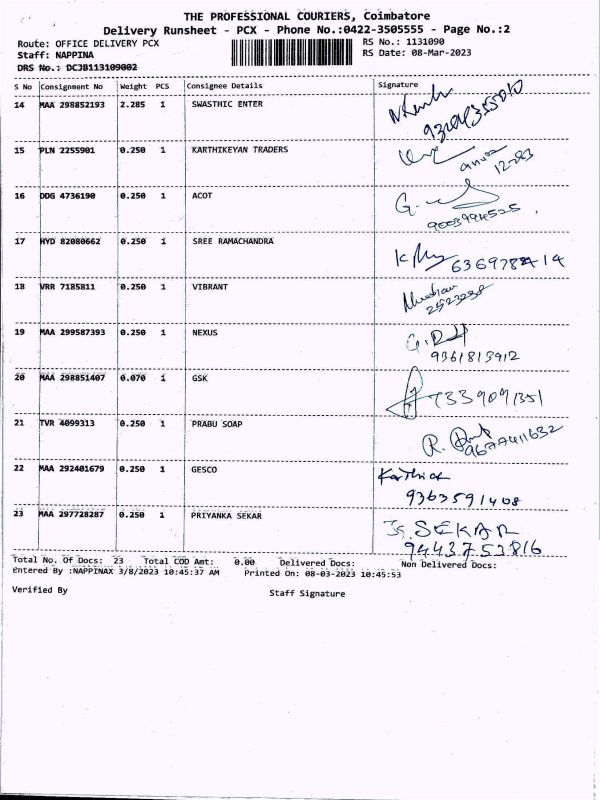 THE PROFESSIONAL COURIERS, Coimbatore
Delivery Runsheet - PCX - Phone No.:0422-3505555 - Page No.:2
Route: OFFICE DELIVERY PCX
RS No.: 1131090
Staff: NAPPINA
RS Date: 08-Mar-2023
DRS No.: DCJB113109002
S No Consignment No Weight PCS Consignee Details Signature
14 MAA 298852193 2.285 1 SWASTHIC ENTER
15 PLN 2255901 0.250 1 KARTHIKEYAN TRADERS
16 DDG 4736190 0.250 1 ACOT
G.
17 HYD 82080662 0.250 1 SREE RAMACHANDRA
18 VRR 7185811 0.250 1 VIBRANT
19 MAA 299587393 0.250 1 NEXUS
9361813912
20 MAA 298851407 0.070 1 GSK
7339091351
21 TVR 4099313 0.250 1 PRABU SOAP
22 MAA 292401679 0.250 1 GESCO
Karthick
9363591408
23 MAA 297728287 0.250 1 PRIYANKA SEKAR
SEKAR
9443753816
Total No. Of Docs: 23 Total COD Amt: 0.00 Delivered Docs: Non Delivered Docs:
Entered By :NAPPINAX 3/8/2023 10:45:37 AM Printed On: 08-03-2023 10:45:53
Verified By
Staff Signature